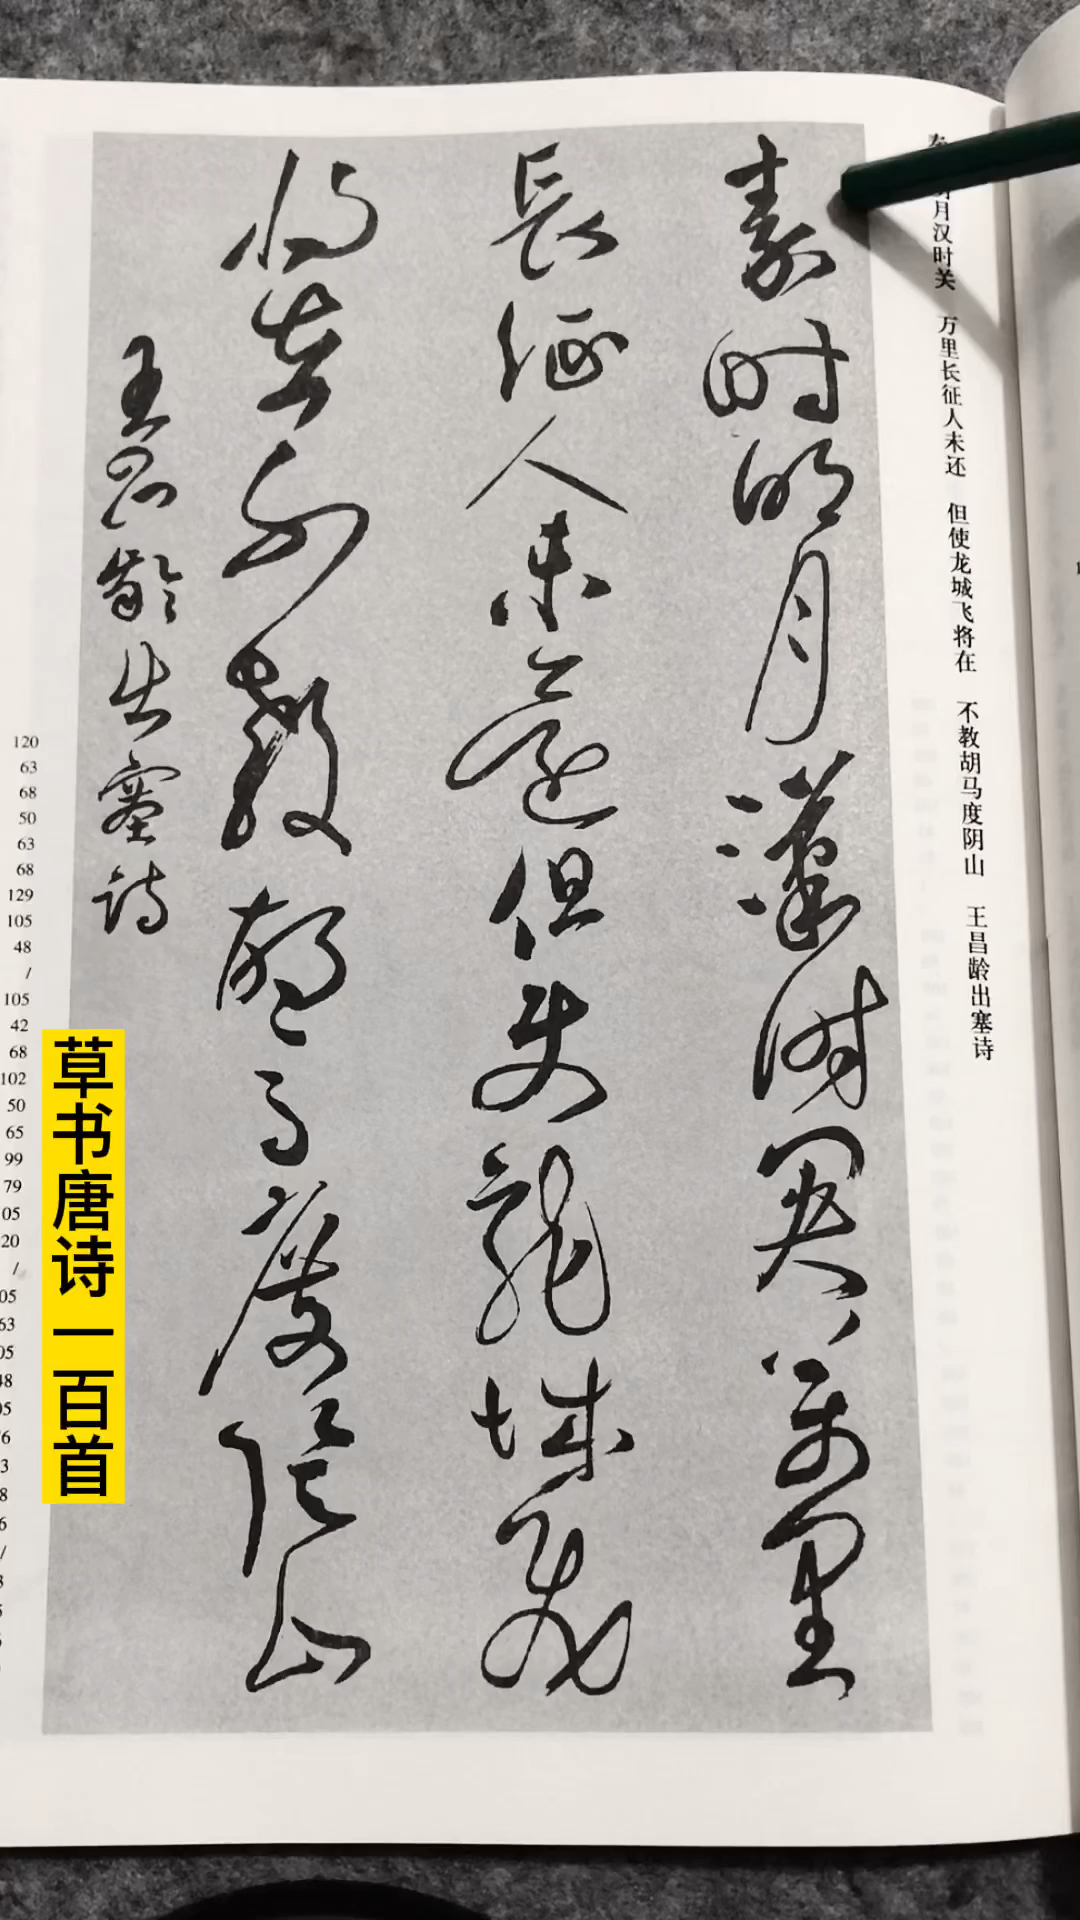 秦 明月汉时关 万里长征人未还 但使龙城飞将在 不教胡马度阴山 王昌龄出塞诗
秦時明月漢時関萬里
長征人未還但使龍城飛
將在不教胡馬度陰山
王昌齡出塞詩
草书唐诗一百首
120
63
68
50
63
68
129
105
48
/
105
42
68
102
50
65
99
79
05
20
/
05
63
05
48
05